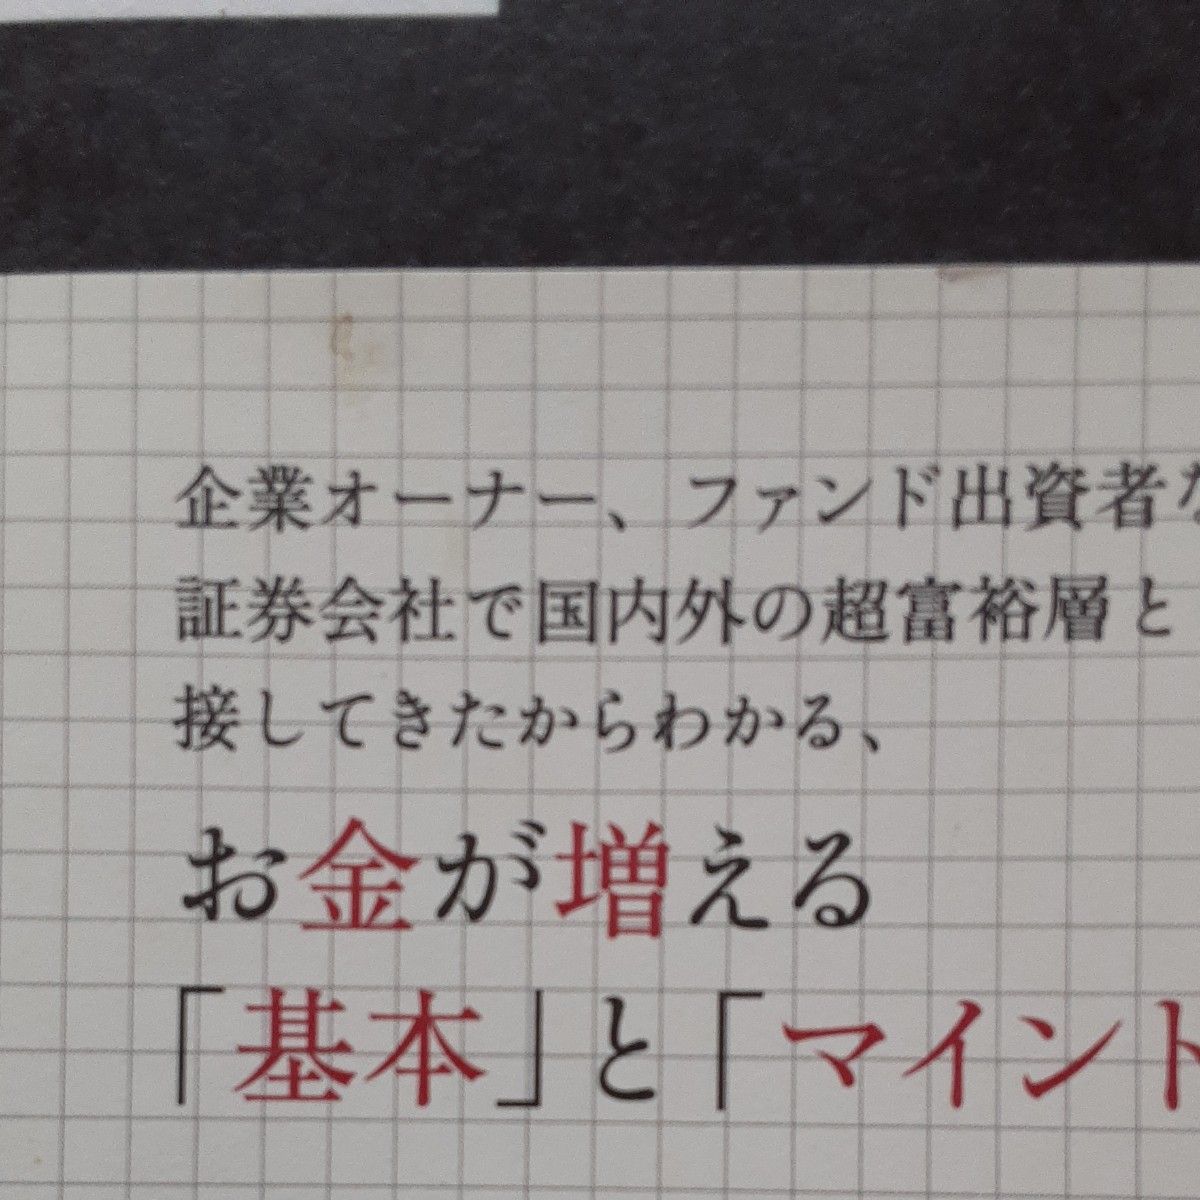 企業オーナー、ファンド出資者な
証券会社で国内外の超富裕層と
接してきたからわかる、
お金が増える
「基本」と「マイント